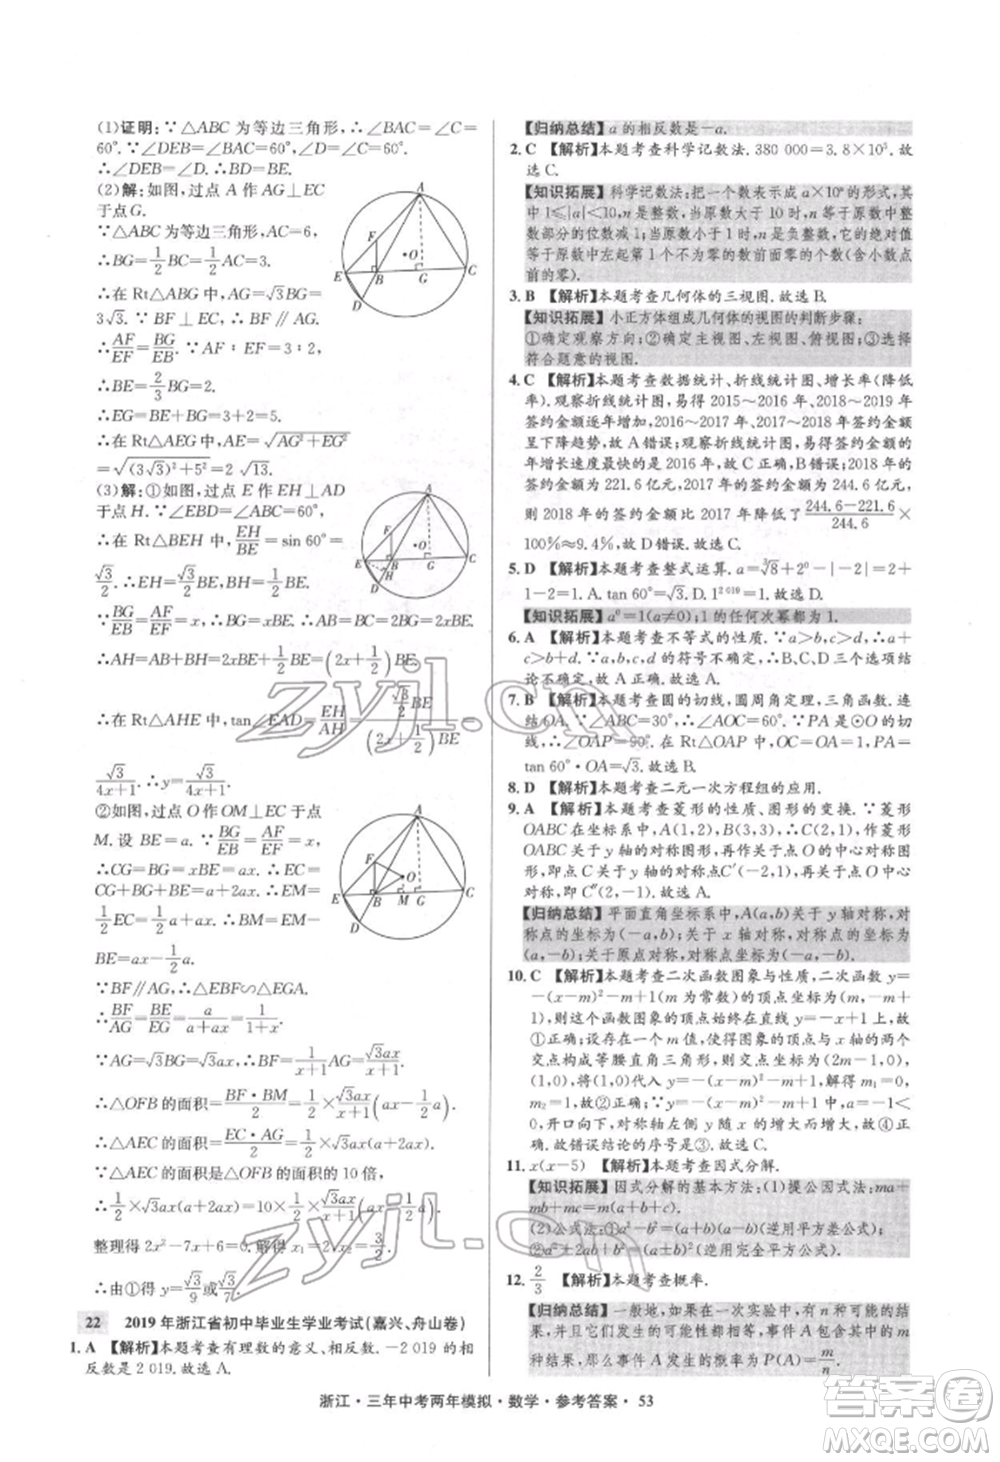 (1)证明:∵△ABC 为等边三角形,∴∠BAC=∠C=
60°.∵∠DEB=∠BAC=60°,∠D=∠C=60°.
∴∠DEB=∠D.
(2)解:如图,过点 A 作 AG⊥EC
于点 G.
∵△ABC 为等边三角形,AC=6,
∴BG=1/2 BC=1/2 AC=3.
∴在 Rt△ABG 中,AG=√3BG=
3√3.∵BF⊥EC,∴BF∥AG.
∴AF/EF=BG/EB.∵AF∶EF=3∶2,
∴BE=2/3 BG=2.
∴EG=BE+BG=3+2=5.
∴在 Rt△AEG 中,AE=√(AG²+EG²)
=√((3√3)²+5²)=2√13.
(3)解:①如图,过点 E 作 EH⊥AD
于点 H.∵∠EBD=∠ABC=60°,
∴在 Rt△BEH 中,EH/BE=sin 60°=
√3/2.∴EH=√3/2 BE,BH=1/2 BE.
∵BG/EB=AF/EF=x,∴BG=xBE.
∴AB=BC=2BG=2xBE.
∴AH=AB+BH=2xBE+1/2 BE=(2x+1/2)BE.
∴在 Rt△AHE 中,tan∠EAD=EH/AH=(√3/2 BE)/((2x+1/2)BE)=
√3/(4x+1).∴y=√3/(4x+1).
②如图,过点 O 作 OM⊥EC 于点
M.设 BE=a.∵BG/EB=AF/EF=x,
∴CG=BG=xBE=ax.
∴EC=CG+BG+BE=a+2ax.∴EM=
1/2 EC=1/2 a+ax.∴BM=EM-BE=
ax-1/2 a.
∵BF∥AG,∴△EBF∽△EGA.
∴BF/AG=BE/EG=a/(a+ax)=1/(1+x).
∵AG=√3BG=√3ax,∴BF=1/(x+1)AG=√3ax/(x+1).
∴△OFB 的面积=BF·BM/2=1/2·√3ax/(x+1)(ax-1/2 a).
∴△AEC 的面积=EC·AG/2=1/2·√3ax(a+2ax).
∵△AEC 的面积是△OFB 的面积的 10 倍,
∴1/2×√3ax(a+2ax)=10×1/2×√3ax/(x+1)(ax-1/2 a).
整理得 2x²-7x+6=0.解得 x₁=2,x₂=3/2.
∴由①得 y=√3/9或√3/7.
22 2019 年浙江省初中毕业生学业考试(嘉兴、舟山卷)
1. A 【解析】本题考查有理数的意义、相反数.-2 019 的相
反数是 2 019.故选 A.
【归纳总结】a 的相反数是-a.
2. C 【解析】本题考查科学记数法.380 000=3.8×10⁵.故
选 C.
【知识拓展】科学记数法:把一个数表示成 a×10ⁿ 的形式,其
中 1≤|a|<10,n 是整数,当原数大于 10 时,n 等于原数的
整数位数减 1;当原数小于 1 时,n 是负整数,n 的绝对值等
于原数中左起第 1 个不为零的数前面零的个数(含小数点
前的零).
3. B 【解析】本题考查几何体的三视图.故选 B.
【知识拓展】小正方体组成几何体的视图的判断步骤:
①确定观察方向;②确定主视图、左视图、俯视图;③选择
符合题意的视图.
4. C 【解析】本题考查数据统计、折线统计图、增长率(降低
率).观察折线统计图,发现 2015~2016 年、2018~2019 年
签约金额逐年增加,2016~2017 年、2017~2018 年签约金额
呈下降趋势,故 A 错误;观察折线统计图,发现签约金额的
增长速度最快的是 2016 年,故 C 正确,B 错误;2017 年的签
约金额为 221.6 亿元,2017 年的签约金额为 244.6 亿元,
则 2018 年的签约金额比 2017 年降低了(244.6-221.6)/244.6×
100%≈9.4%,故 D 错误.故选 C.
5. D 【解析】本题考查整式运算.a=³√8+2⁰-|-2|=2+
1-2=1.A. tan 60°=√3.D. 1²⁰¹⁹=1.故选 D.
【知识拓展】a⁰=1(a≠0);1 的任何次幂都为 1.
6. A 【解析】本题考查不等式的性质.∵a>b,c>d,∴a+
c>b+d.∵a,b,c,d 的符号不确定,∴B、C、D 选项的结
论不确定,故 A 正确.故选 A.
7. B 【解析】本题考查圆的切线,圆周角定理,三角函数.连
结 OA.∵∠ABC=30°,∴∠AOC=60°.∵PA 是⊙O 的切
线,∴∠OAP=90°.在 Rt△OAP 中,∠AOP=60°,∴PA=
tan 60°·OA=√3.故选 B.
8. D 【解析】本题考查二元一次方程组的应用.
9. A 【解析】本题考查菱形的性质、图形的变换.∵菱形
OABC 在坐标系中,A(1,2),B(3,3),∴C(2,1),作菱形
OABC 关于 y 轴的对称图形,再作关于点 O 的中心对称
图形,即点 C 关于 y 轴的对称点 C′(-2,1),再关于点 O 中心
对称,即 C″(2,-1).故选 A.
【归纳总结】平面直角坐标系中,A(a,b)关于 y 轴对称,对
称点的坐标为(-a,b);关于 x 轴对称,对称点的坐标为
(a,-b);关于原点对称,对称点的坐标为(-a,-b).
10. C 【解析】本题考查二次函数图象与性质,二次函数 y=
-(x-m)²-m+1(m 为常数)的顶点坐标为(m,-m+
1),∴这个函数图象的顶点始终在直线 y=-x+1 上,故
①正确;∵存在一个 m 的值,使得函数图象的顶点与 x 轴的两个
交点构成等腰直角三角形,则交点坐标为(2m-1,0),
(1,0),将(1,0)代入 y=-(x-m)²-m+1,解得 m₁=0,
m₂=1.故②正确;∵x₁+x₂>2m,∴(x₁+x₂)/2>m.∵x₁<
x₂,∴y₁>y₂.故③错误;当-1<x<2 时,y 随 x 的增大而增大,且 a=-1<0,∴m 的取值范围为 m≥2.故④正
确.故错误结论的序号是③.故选 C.
11. x(x-5) 【解析】本题考查因式分解.
【知识拓展】因式分解的基本方法:(1)提公因式法:ma+
mb+mc=m(a+b+c).
(2)公式法:①a²-b²=(a+b)(a-b)(逆用平方差公式);
②a²±2ab+b²=(a±b)²(逆用完全平方公式).
12. 2/3 【解析】本题考查概率.
【归纳总结】一般地,如果在一次试验中,有 n 种可能的结
果,并且它们发生的可能性都相等,事件 A 包含其中的 m
种结果,那么事件 A 发生的概率为 P(A)=m/n.
浙江·三年中考两年模拟·数学·参考答案·53
zyjl.cn
zyjl.cn
答案圈
MXQE.COM